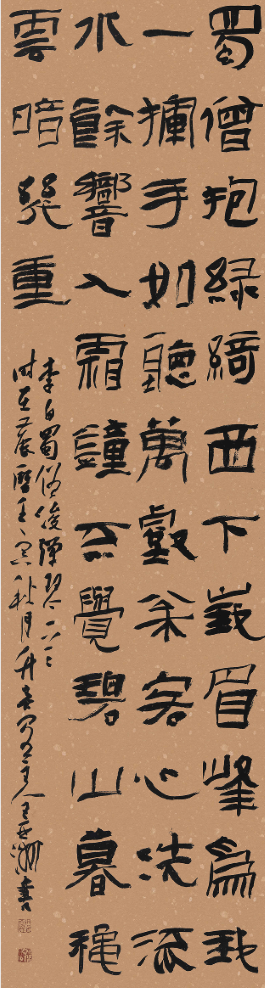 蜀僧抱綠綺西下峩眉峰為我
一揮手如聽萬壑松客心洗流
水餘響入霜鐘不覺碧山暮穐
雲暗幾重
李白蜀僧彈琴
時在秋月書